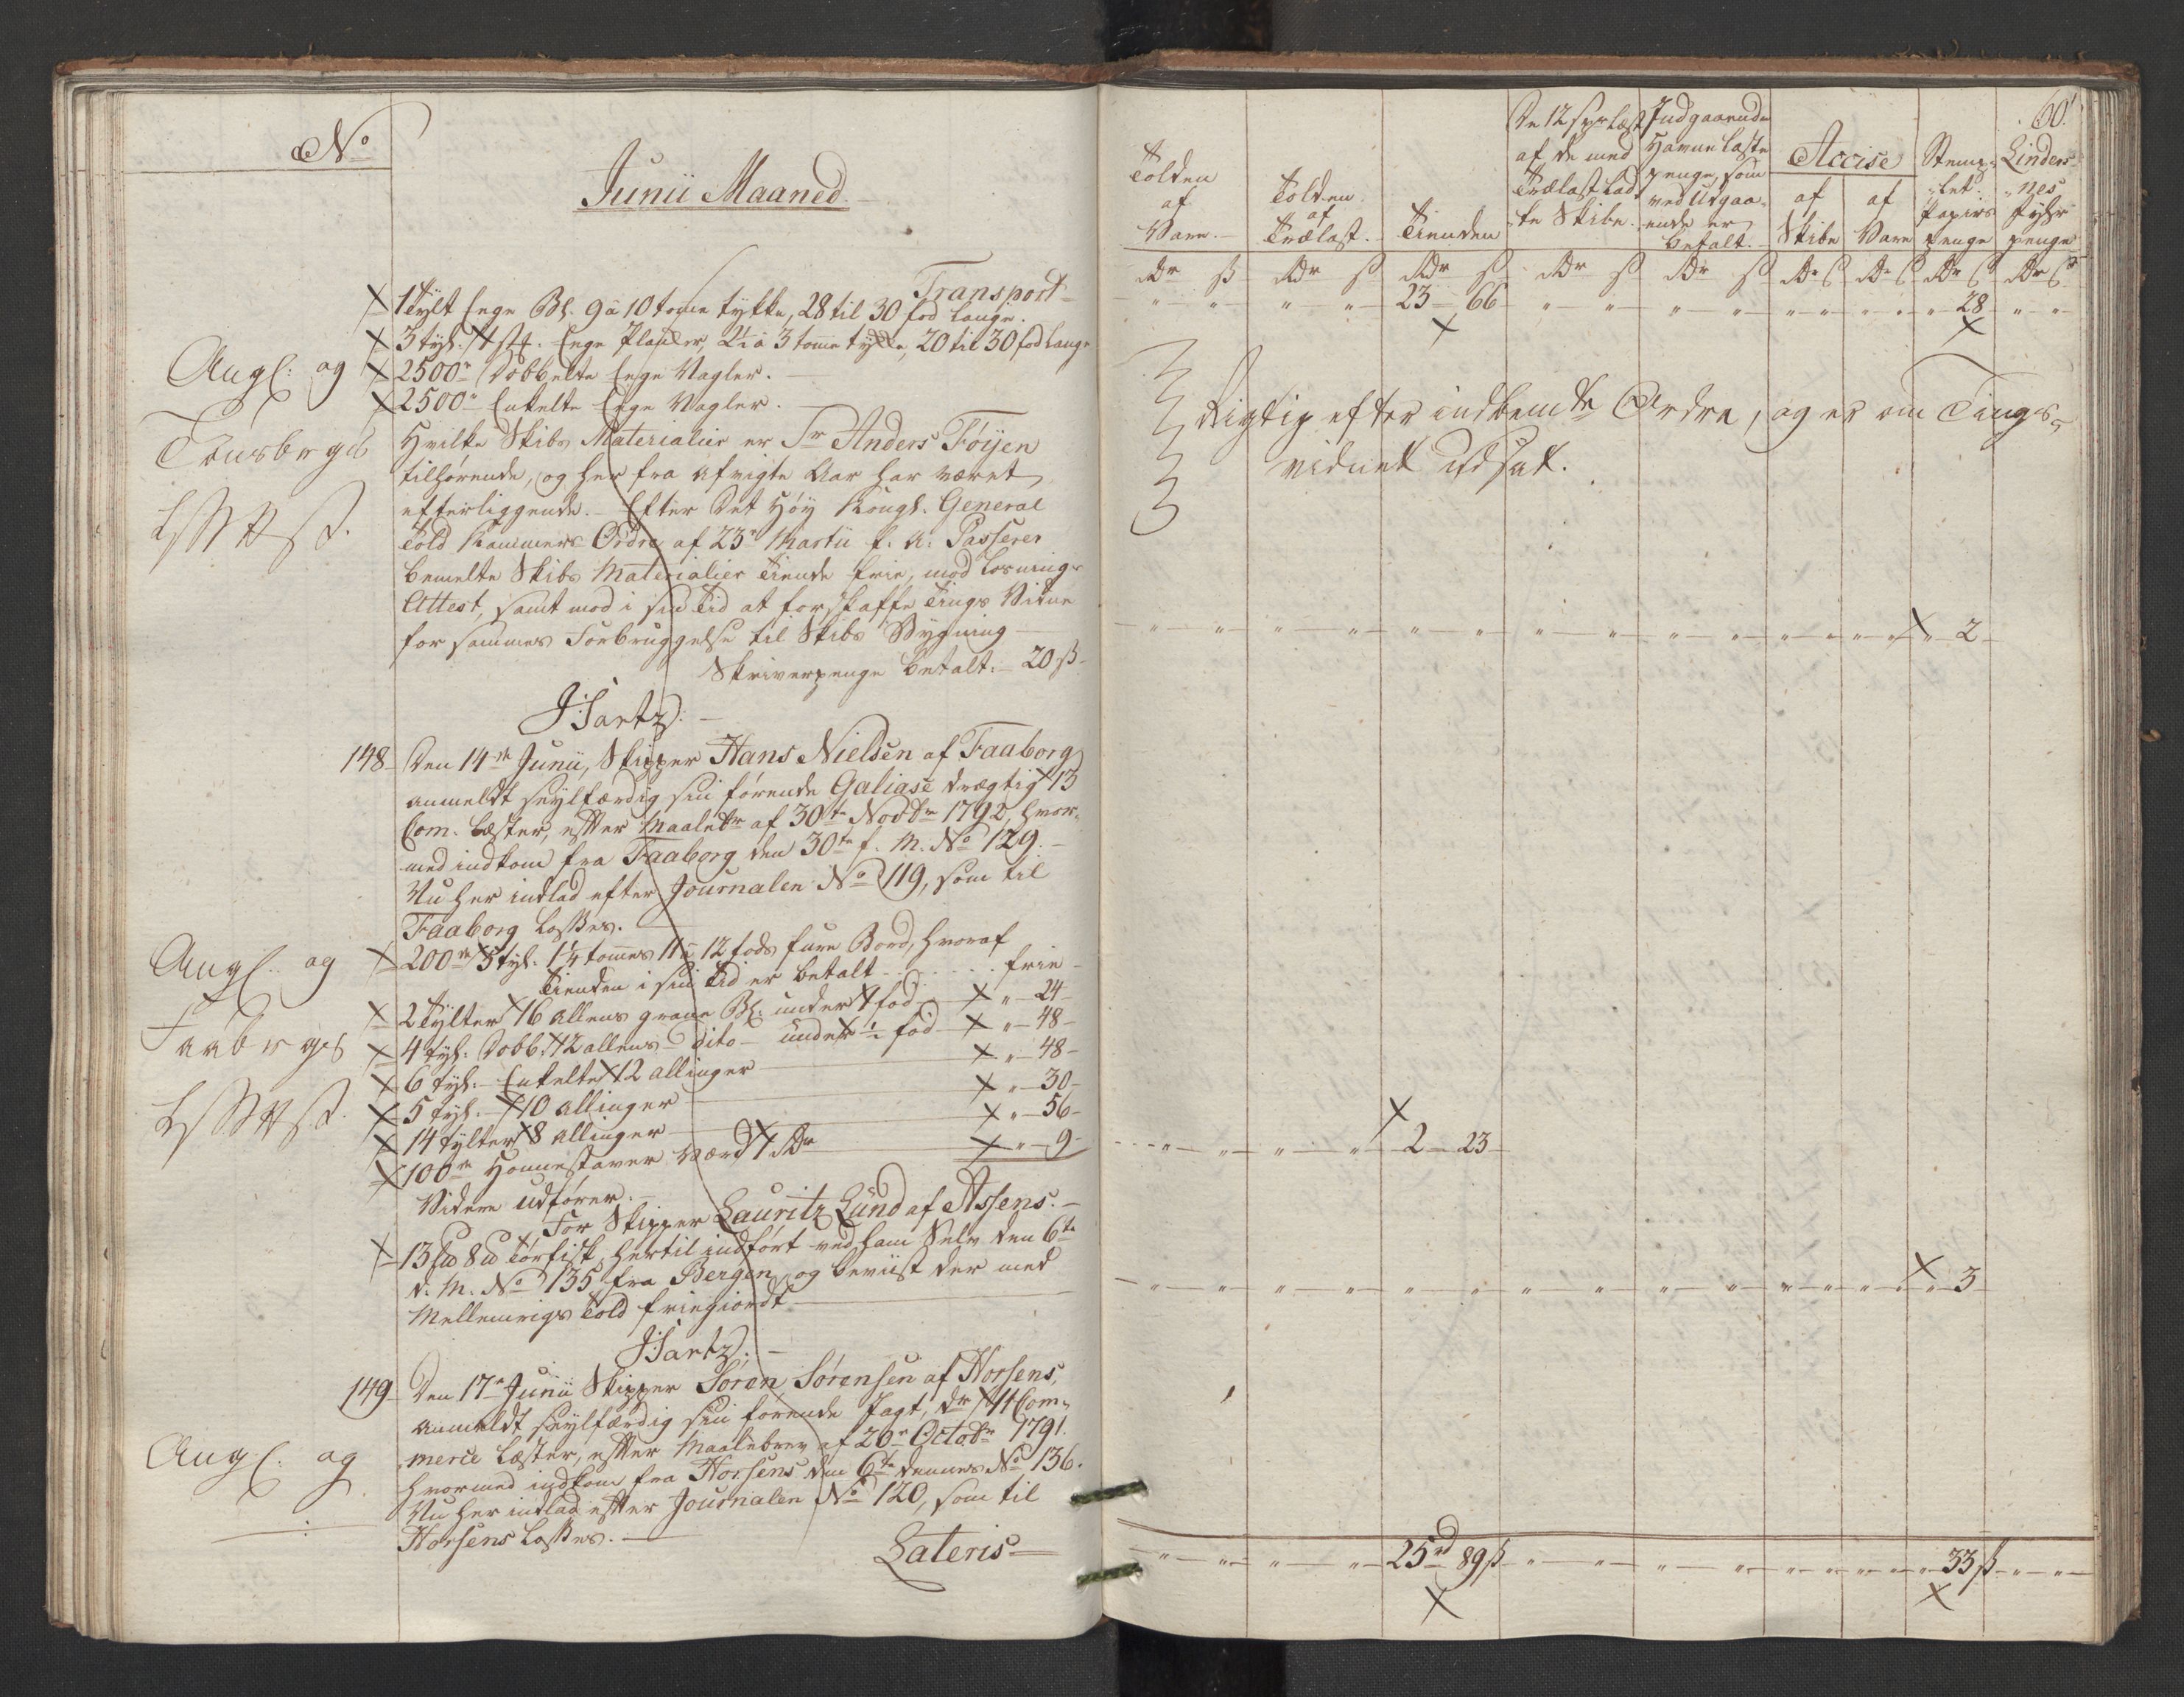 No
Junii Maaned.
Transport
1 Tylt Ege Bl. 9 à 10 tome tykke, 28 til 30 fod lange.
3 tyl. 4 st. Ege Planker, 2½ à 3 tomme tykke, 20 til 30 fod lange
2500de Dobbelte Ege Nagler.
2500de Enkelte Ege Nagler.
Angl: og
Tønsbergs
Hvilke Skibs Materialier er Sr Anders Føyen
tilhørende, og her fra afvigte Aar har været
efterliggende. Efter Det Høy Kongl. General
Told Kammers Ordre af 23de Martii f. A: Passerer
bemelte Skibs Materialier Tiende frie, mod Losnings
Attest, samt mod i sin Tid at forskaffe Tings Vidne
for sammes Forbruggelse til Skibs Bygning
Skriverpenge betalt. 20 ß
JSartz.
148 Den 14de Junii, Skipper Hans Nielsen af Faaborg
anmeldt seylfærdig sin førende Galiase drægtig 13
Com. Læster, efter Maalebr af 30te Novbr 1792, hvor-
med indkom fra Faaborg den 30te f. M. No 129.
Nu her indlad efter Journalen No 119, som til
Faaborg losses.
Angl. og
Faaborgs
200de 5 tyl. 1¼ tommes 11 à 12 fods fure Bord, hvoraf
Tienden i sin Tid er betalt . . . . . . frie
2 Tylter 16 Allens grane Bl. under 4 fod " 24
4 tyl. Dobb. 12 allens dito under ½ fod " 48
6 tyl. Enkelte 12 allinger " 48
5 tyl. 10 allinger " 30
14 Tylter 8 allinger " 56
100de Honnestaver værd 1 Rdr " 9
Videre udfører.
For Skipper Lauritz Lund af Assens.
13 ℔ 8 ℔ Tørfisk, hertil indført ved ham Selv den 6te
d. M. No 135 fra Bergen, og beviist der med
Mellemrigs Told friegiordt
JSartz.
149 Den 17de Junii Skipper Søren Sørensen af Horsens,
anmeldt seylfærdig sin førende Jagt, dr 11 Com-
merce Læster, efter Maalebrev af 20de Octobr 1791.
hvormed indkom fra Horsens den 6te dennes No 136.
Nu her indlad efter Journalen No 120, som til
Horsens losses.
Angl: og
Lateris
60.
Tolden af Vare.
Tolden af Trælast.
Tienden
De 12 s pr Læst af de med Trælast ladte Skibe.
Indgaaende Havne Læste penge, som ved Udgaaende er betalt.
Accise
af Skibe
af Vare
Stemplet Papirs penge
Lindesnes Fyhr penge
Rdr ß Rdr ß Rdr ß Rdr ß Rdr ß Rdr ß Rdr ß Rdr ß Rdr ß
" " " " 23 66 " " " " " " " " " 28 " "
Rigtig efter indbemte Ordre, og er om Tings-
vidnet udsat.
" 2
2 23
" 3
25rd 89ß
33ß